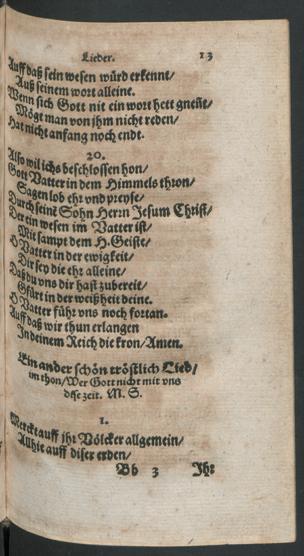 Lieder. 13
Auff daß sein wesen würd erkennt/
Auß seinem wort alleine.
Wenn sich Gott nit ein wort hett gneñt/
Mögt man von jhm nicht reden/
Hat nicht anfang noch endt.
20.
Also wil ichs beschlossen hon/
Gott Vatter in dem Himmels thron/
Sagen lob ehr vnd preyse/
Durch seinē Sohn Herrn Jesum Christ/
Der ein wesen im Vatter ist/
Mit sampt dem H. Geiste/
O Vatter in der ewigkeit/
Dir sey die ehr alleine/
Daß du vns dir hast zubereit/
Gfürt in der weißheit deine.
O Vatter führ vns noch fortan.
Auff daß wir thun erlangen
In deinem Reich die kron/Amen.
Ein ander schön tröstlich Lied/
im thon/Wer Gott nicht mit vns
dise zeit. M. S.
1.
Mercket auff jhr Völcker allgemein/
Allhie auff diser erden/
Bb 3 Jhr